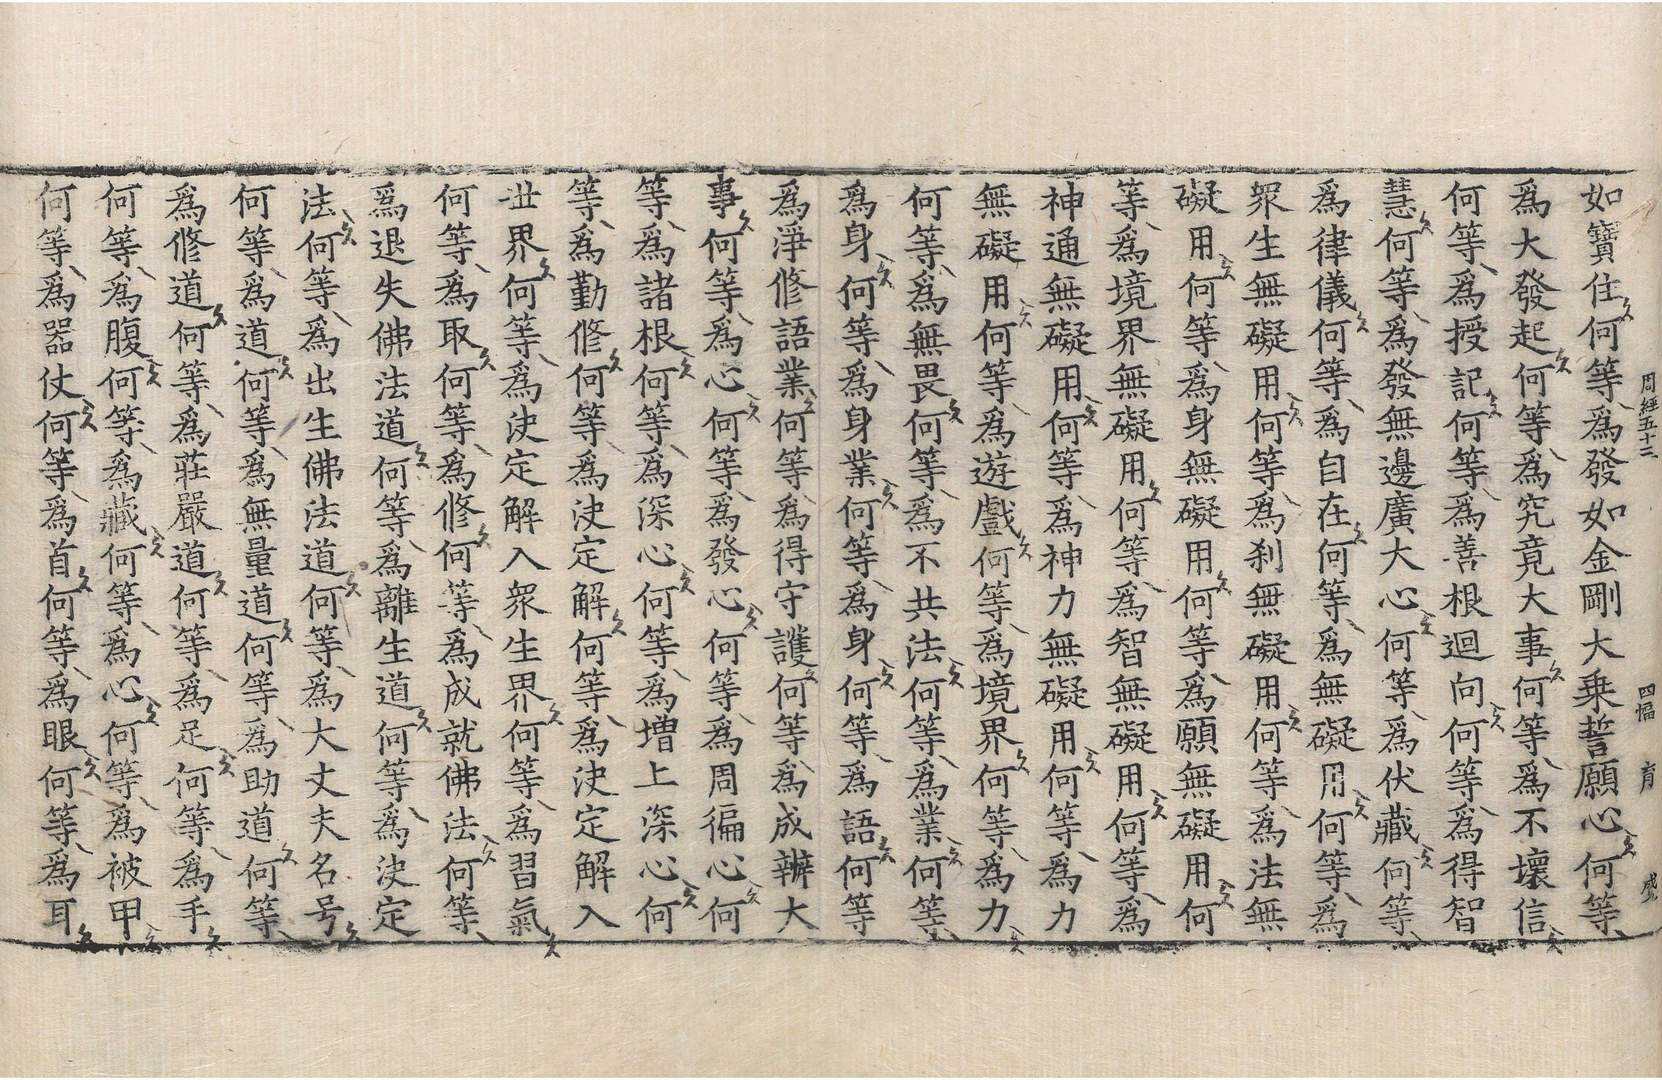 周經五十三 四幅 育
如寶住何等爲發如金剛大乗誓願心何等
爲大發起何等爲究竟大事何等爲不壞信
何等爲授記何等爲善根迴向何等爲得智
慧何等爲發無邊廣大心何等爲伏藏何等
爲律儀何等爲自在何等爲無礙用何等爲
衆生無礙用何等爲刹無礙用何等爲法無
礙用何等爲身無礙用何等爲願無礙用何
等爲境界無礙用何等爲智無礙用何等爲
神通無礙用何等爲神力無礙用何等爲力
無礙用何等爲遊戲何等爲境界何等爲力
何等爲無畏何等爲不共法何等爲業何等
爲身何等爲身業何等爲身何等爲語何等
爲淨修語業何等爲得守護何等爲成辦大
事何等爲心何等爲發心何等爲周徧心何
等爲諸根何等爲深心何等爲增上深心何
等爲勤修何等爲決定解何等爲決定解入
世界何等爲決定解入衆生界何等爲習氣
何等爲取何等爲修何等爲成就佛法何等
爲退失佛法道何等爲離生道何等爲決定
法何等爲出生佛法道何等爲大丈夫名号
何等爲道何等爲無量道何等爲助道何等
爲修道何等爲莊嚴道何等爲足何等爲手
何等爲腹何等爲藏何等爲心何等爲被甲
何等爲器仗何等爲首何等爲眼何等爲耳